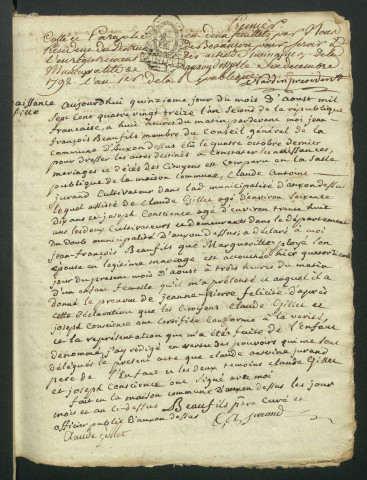 Premier
Cotté et Paraphé en deux feuillets par Nous
Président du District de Besançon pour servir à
l'enregistrement des actes de naissances de la
Municipalité d'Auxon dessus le décembre
1792 l'an 1er de la République
naissance aujourd'huy quinzieme jour du mois d'aoust mil
fille sept cent quatre vingt treize l'an second de la république
francaise, à huit heures du matin pardevant moi jean
françois Beaufils membre du Conseil général de la
commune d'Auxon dessus élu le quatre octobre dernier
pour dresser les actes destinés à constater les naissances,
mariages et décès des Citoyens est comparu en la salle
publique de la maison commune, Claude Antoine
jurand Cultivateur dans lad municipalité d'auxon dessus
lequel assisté de Claude Gillet agé d'environ soixante
dix ans et joseph Conscience agé d'environ trente huit
ans les deux Cultivateurs et demeurants dans le département
du Doubs municipalité d'auxon dessus, a déclaré à moi
jean-françois Beaufils que Margueritte son
épouse en légitime mariage est accouchée hier quatorzieme
jour du présent mois d'aoust à trois heures du matin
d'un enfant femelle qu'il m'a présenté et auquel il a
donné le prenom de jeanne-Pierre felicité d'après
cette déclaration que les Citoyens Claude Gillet et
joseph Conscience ont certifiée conforme à la verité,
et la représentation qui m'a été faite de l'Enfant
denommé j'ay rédigé en vertu des pouvoirs qui me sont
délégués le présent acte que claude antoine jurand
pere de l'Enfant et les deux temoins claude Gillet
et joseph Conscience ont signé avec moi
fait en la maison commune d'auxon dessus les jour
mois et an ci-dessus Beaufils ptre Curé et
officier public d'auxon dessus C. A. jurand
Claude gillet